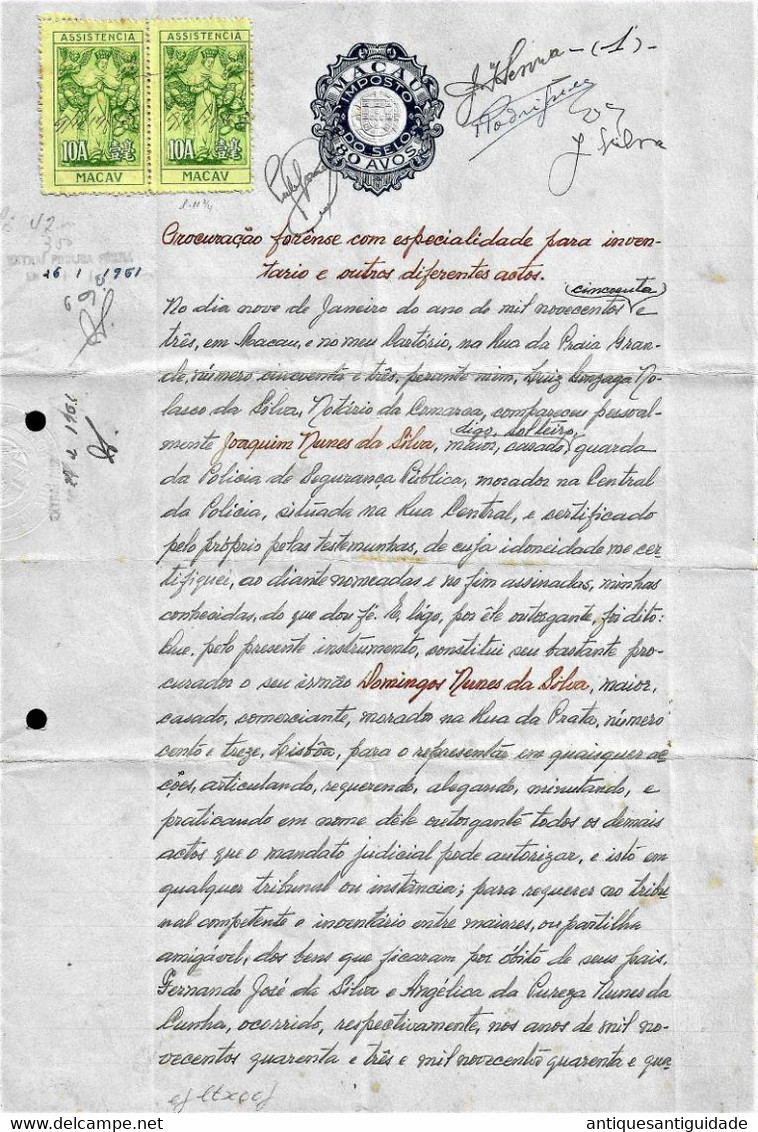 ASSISTENCIA ASSISTENCIA
10A 10A
MACAV MACAV
MACAU
IMPOSTO
DO SELO
80 AVOS
-(1)-
Rodrigues
J Silva
26 1 1961
Procuração forense com especialidade para inven-
tario e outros diferentes actos.
(cincoenta)
No dia nove de Janeiro do ano de mil novecentos e
três, em Macau, e no meu Cartório, na Rua da Praia Gran-
de, número cincoenta e três, perante mim, Luiz Gonzaga No-
lasco da Silva, Notário da Comarca, compareceu pessoal-
digo, solteiro,
mente Joaquim Nunes da Silva, maior, casado, guarda
da Policia de Segurança Pública, morador na Central
da Polícia, situada na Rua Central, e certificado
pelo próprio pelas testemunhas, de cuja idoneidade me cer-
tifiquei, ao diante nomeadas e no fim assinadas, minhas
conhecidas, do que dou fé. E, logo, por êle outorgante, foi dito:
Que, pelo presente instrumento, constitui seu bastante pro-
curador o seu irmão Domingos Nunes da Silva, maior,
casado, comerciante, morador na Rua da Prata, número
cento e treze, Lisbôa, para o representar em quaisquer ac-
ções, articulando, requerendo, alegando, minutando, e
praticando em nome dêle outorgante todos os demais
actos que o mandato judicial pode autorizar, e isto em
qualquer tribunal ou instância; para requerer no tribu-
nal competente o inventário entre maiores, ou partilha
amigável, dos bens que ficaram por óbito de seus pais,
Fernando José da Silva e Angélica da Pureza Nunes da
Cunha, ocorrido, respectivamente, nos anos de mil no-
vecentos quarenta e três e mil novecentos quarenta e qua-
antiquesantiguidade